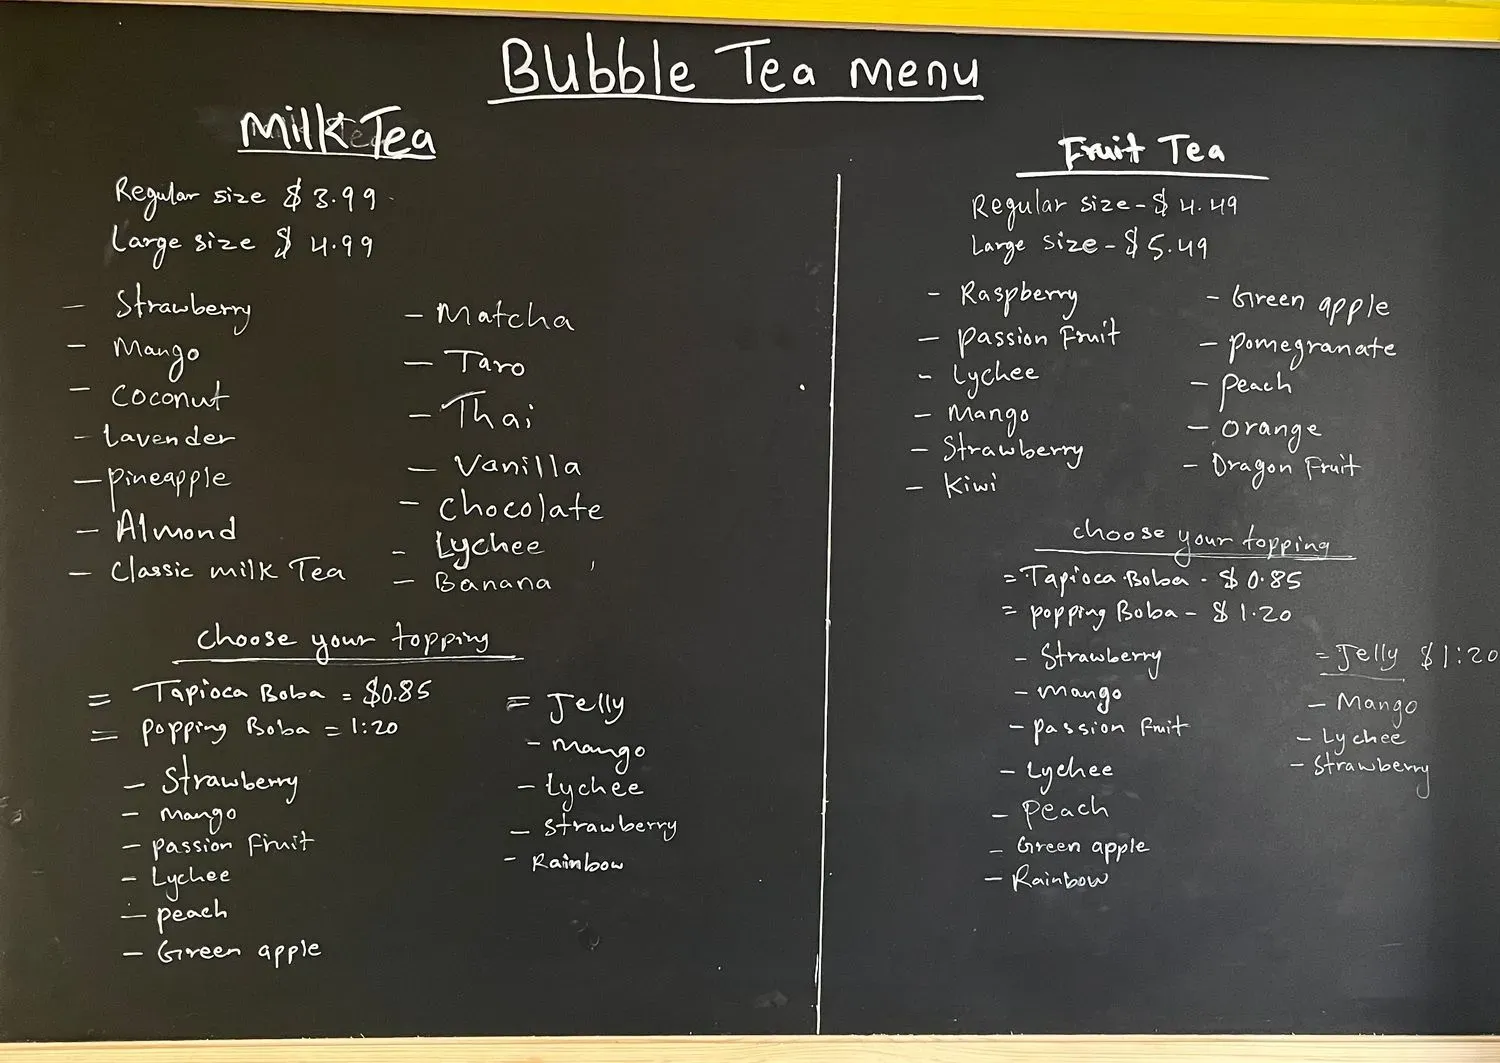 Bubble Tea menu
Milk Tea
Regular size $ 3.99
Large size $ 4.99
- Strawberry
- Mango
- Coconut
- Lavender
- Pineapple
- Almond
- Classic milk Tea
- Matcha
- Taro
- Thai
- Vanilla
- Chocolate
- Lychee
- Banana
choose your topping
= Tapioca Boba = $0.85
= Popping Boba = 1:20
- Strawberry
- Mango
- Passion Fruit
- Lychee
- peach
- Green apple
= Jelly
- Mango
- Lychee
- Strawberry
- Rainbow
Fruit Tea
Regular size - $ 4.49
Large size - $ 5.49
- Raspberry
- Passion Fruit
- Lychee
- Mango
- Strawberry
- Kiwi
- Green apple
- Pomegranate
- Peach
- Orange
- Dragon Fruit
choose your topping
= Tapioca Boba - $ 0.85
= Popping Boba - $ 1.20
- Strawberry
- Mango
- Passion Fruit
- Lychee
- Peach
- Green apple
- Rainbow
= Jelly $1:20
- Mango
- Lychee
- Strawberry